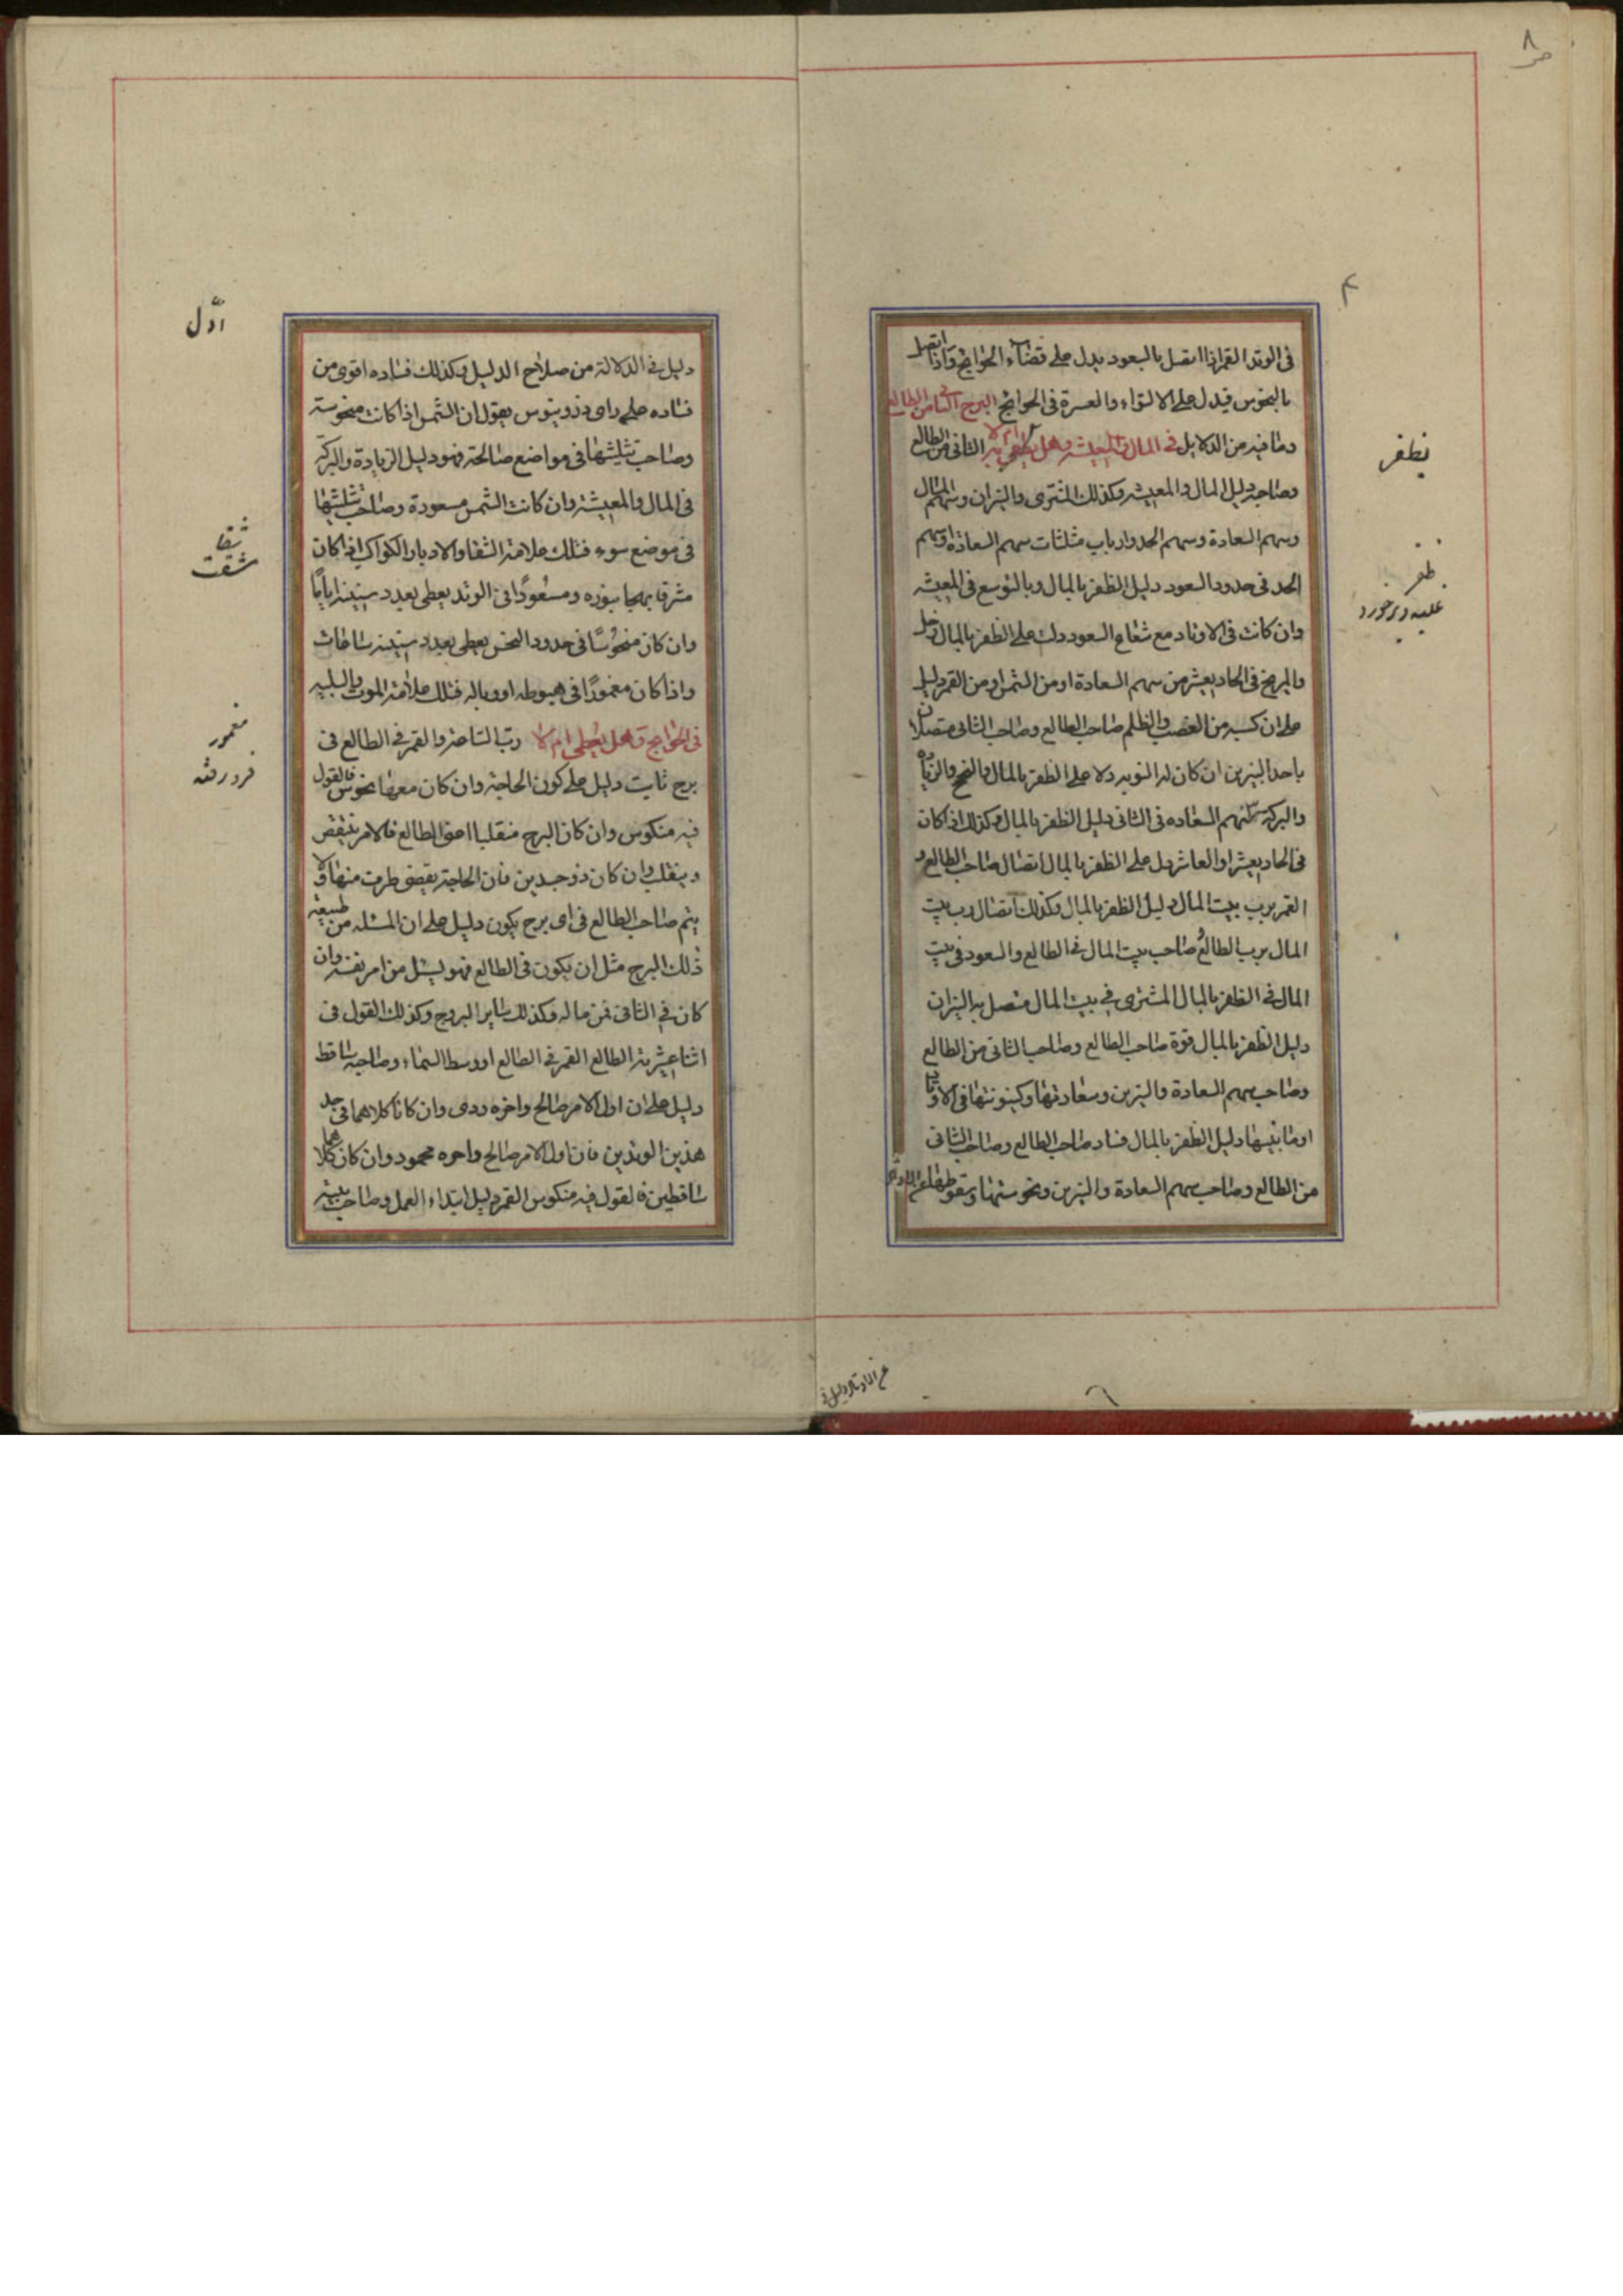 في الوتد القمر اذا اتصل بالسعود يدل على قضاء الحوائج واذا اتصل
بالنحوس فيدل على الالتواء والعسرة في الحوائج البرج الثاني من الطالع
وما فيه من الدلايل في المال والمعيشة وهل يظفر به ام لا الثاني من الطالع
وصاحبه دليل المال والمعيشة وكذلك المشترى والنيران وسهم المال
وسهم السعادة وسهم الجد وارباب مثلثات سهم السعادة وسهم
الجد في حدود السعود دليل الظفر بالمال وبالتوسع في المعيشة
وان كانت في الاوتاد مع شعاع السعود دلت على الظفر بالمال زحل
والمريخ في الحاديعشر من سهم السعادة او من الشمس او من القمر دليل
على ان كسبه من الغصب والظلم صاحب الطالع وصاحب الثاني متصلان
باحد النيرين ان كان له النوبه دلا على الظفر بالمال والنجح والزيادة
والبركة سهم السعاده في الثاني دليل الظفر بالمال وكذلك اذا كان
في الحاديعشر او العاشر دل على الظفر بالمال اتصال صاحب الطالع و
القمر برب بيت المال دليل الظفر بالمال وكذلك اتصال رب بيت
المال برب الطالع صاحب بيت المال في الطالع والسعود في بيت
المال في الظفر بالمال المشترى في بيت المال متصل به النيران
دليل الظفر بالمال قوة صاحب الطالع وصاحب الثاني من الطالع
وصاحب سهم السعادة والنيرين وسعادتها وكينونتها في الاوتاد
او ما يليها دليل الظفر بالمال فساد صاحب الطالع وصاحب الثاني
من الطالع وصاحب سهم السعادة والنيرين ونحوستها وسقوطها عن الاوتاد
عن الاوتاد دليل في
يظفر
ظفر
غلبه
٨
دليل في الدلالة من صلاح الدليل وكذلك فساده اقوى من
فساده على راى دوروينوس يقول ان الشمس اذا كانت منحوسة
وصاحب تثليثها في مواضع صالحة فهو دليل الزيادة والبركة
في المال والمعيشة وان كانت الشمس مسعودة وصاحب تثليثها
في موضع سوء فتلك علامة الشقا والادبار الكواكب اذا كان
مشرقا بهيا بنوره ومسعودًا في الوتد يعطى بعدد سنينه اياما
وان كان منحوسًا في حدود النحس يعطى بعدد سنينه ساعات
واذا كان مغمورًا في هبوطه او وباله فتلك علامة الموت والبلية
في الحوائج وهل يعطى ام لا رب الساعة والقمر في الطالع في
برج ثابت دليل على كون الحاجة وان كان معهما نحوس فالقول
فيه منكوس وان كان البرج منقلبا اعنى الطالع فالامر ينتقض
وينقلب وان كان ذو جسدين فان الحاجة يقضى طرف منها ولا
يتم صاحب الطالع في اى برج يكون دليل على ان المسئلة من طبيعة
ذلك البرج مثل ان يكون في الطالع فهو يسئل من امر نفسه وان
كان في الثاني فمن ماله وكذلك ساير البروج وكذلك القول في
اثنا عشرية الطالع القمر في الطالع او وسط السماء وصاحبه ساقط
دليل على ان اول الامر صالح واخره ردى وان كانا كلاهما في احد
هذين الوتدين فان اول الامر صالح واخره محمود وان كان كلاهما
ساقطين فالقول فيه منكوس القمر دليل ابتداء العمل وصاحب بيته
ادّل
شقا
مشقت
مغمور
فرو رفته